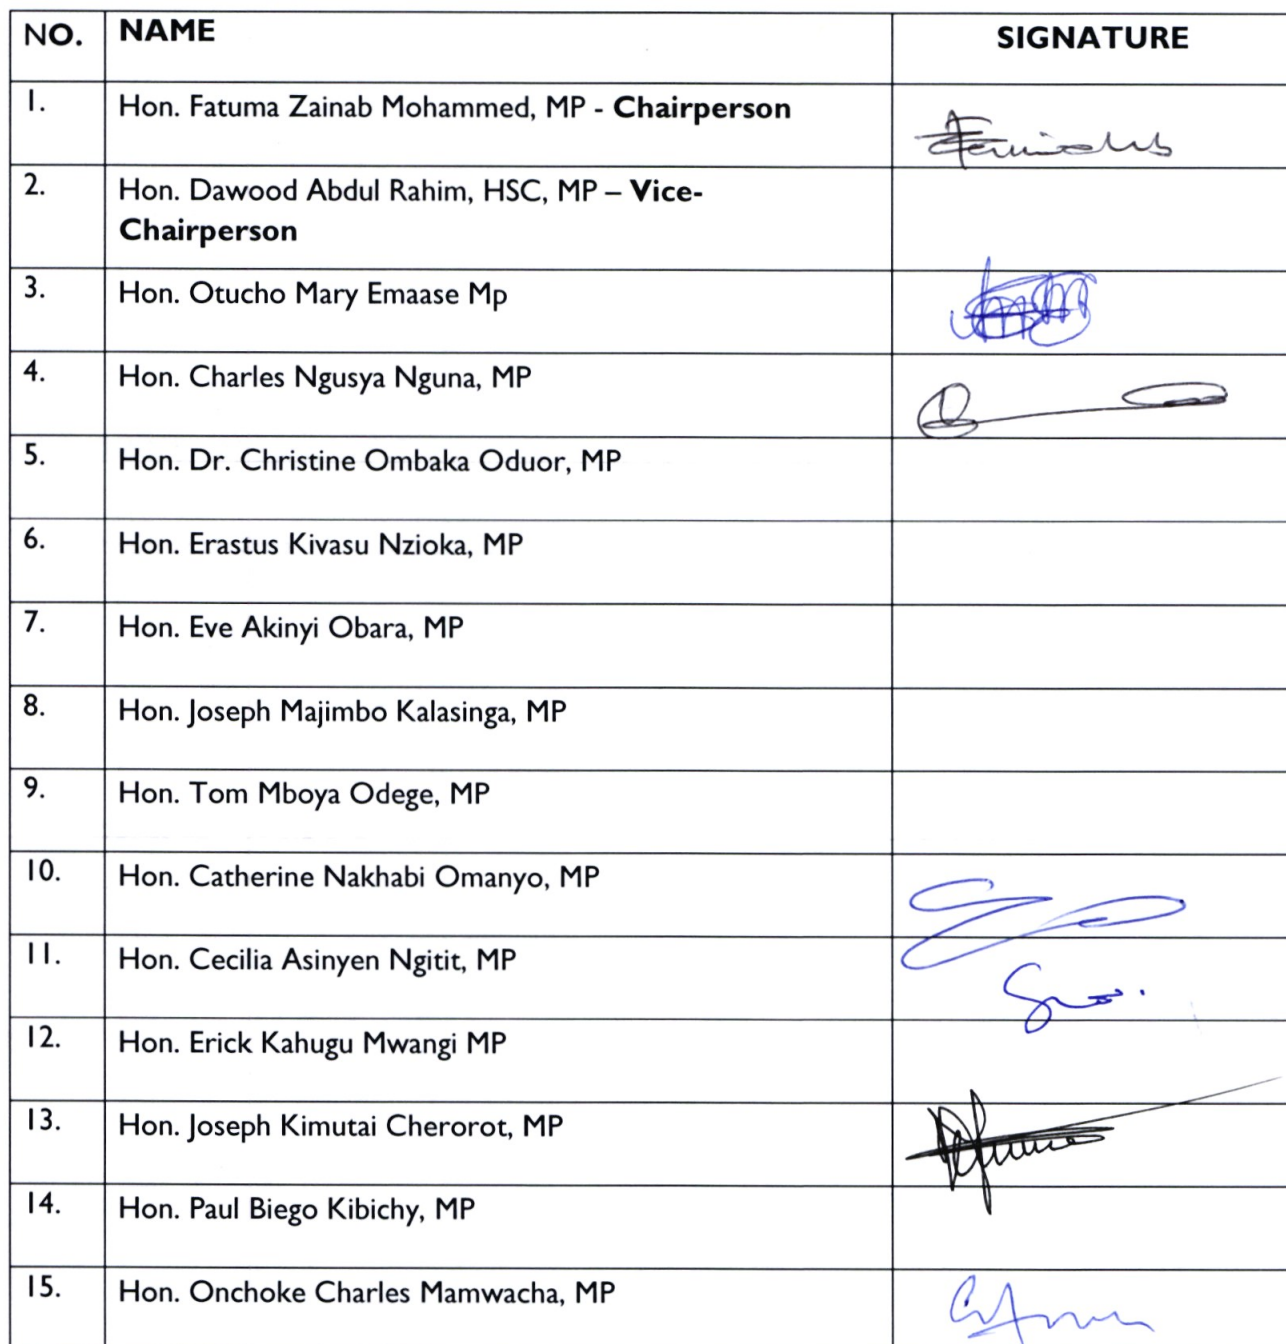 NO. NAME SIGNATURE
1. Hon. Fatuma Zainab Mohammed, MP - Chairperson
2. Hon. Dawood Abdul Rahim, HSC, MP – Vice-
Chairperson
3. Hon. Otucho Mary Emaase Mp
4. Hon. Charles Ngusya Nguna, MP
5. Hon. Dr. Christine Ombaka Oduor, MP
6. Hon. Erastus Kivasu Nzioka, MP
7. Hon. Eve Akinyi Obara, MP
8. Hon. Joseph Majimbo Kalasinga, MP
9. Hon. Tom Mboya Odege, MP
10. Hon. Catherine Nakhabi Omanyo, MP
11. Hon. Cecilia Asinyen Ngitit, MP
12. Hon. Erick Kahugu Mwangi MP
13. Hon. Joseph Kimutai Cherorot, MP
14. Hon. Paul Biego Kibichy, MP
15. Hon. Onchoke Charles Mamwacha, MP